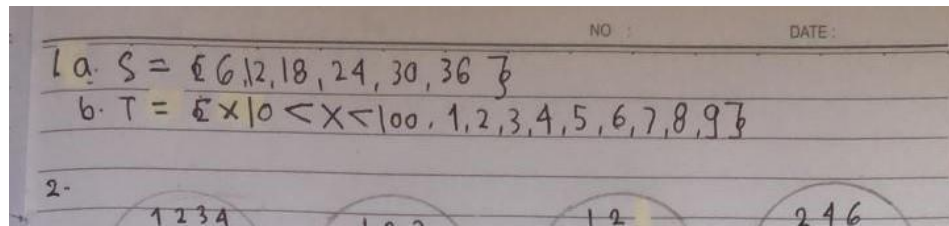 NO : DATE :
1 a. S = { 6,12,18,24,30,36 }
b. T = { x 10 < x < 100. 1,2,3,4,5,6,7,8,9 }
2.
1 2 3 4 1 2 2 4 6